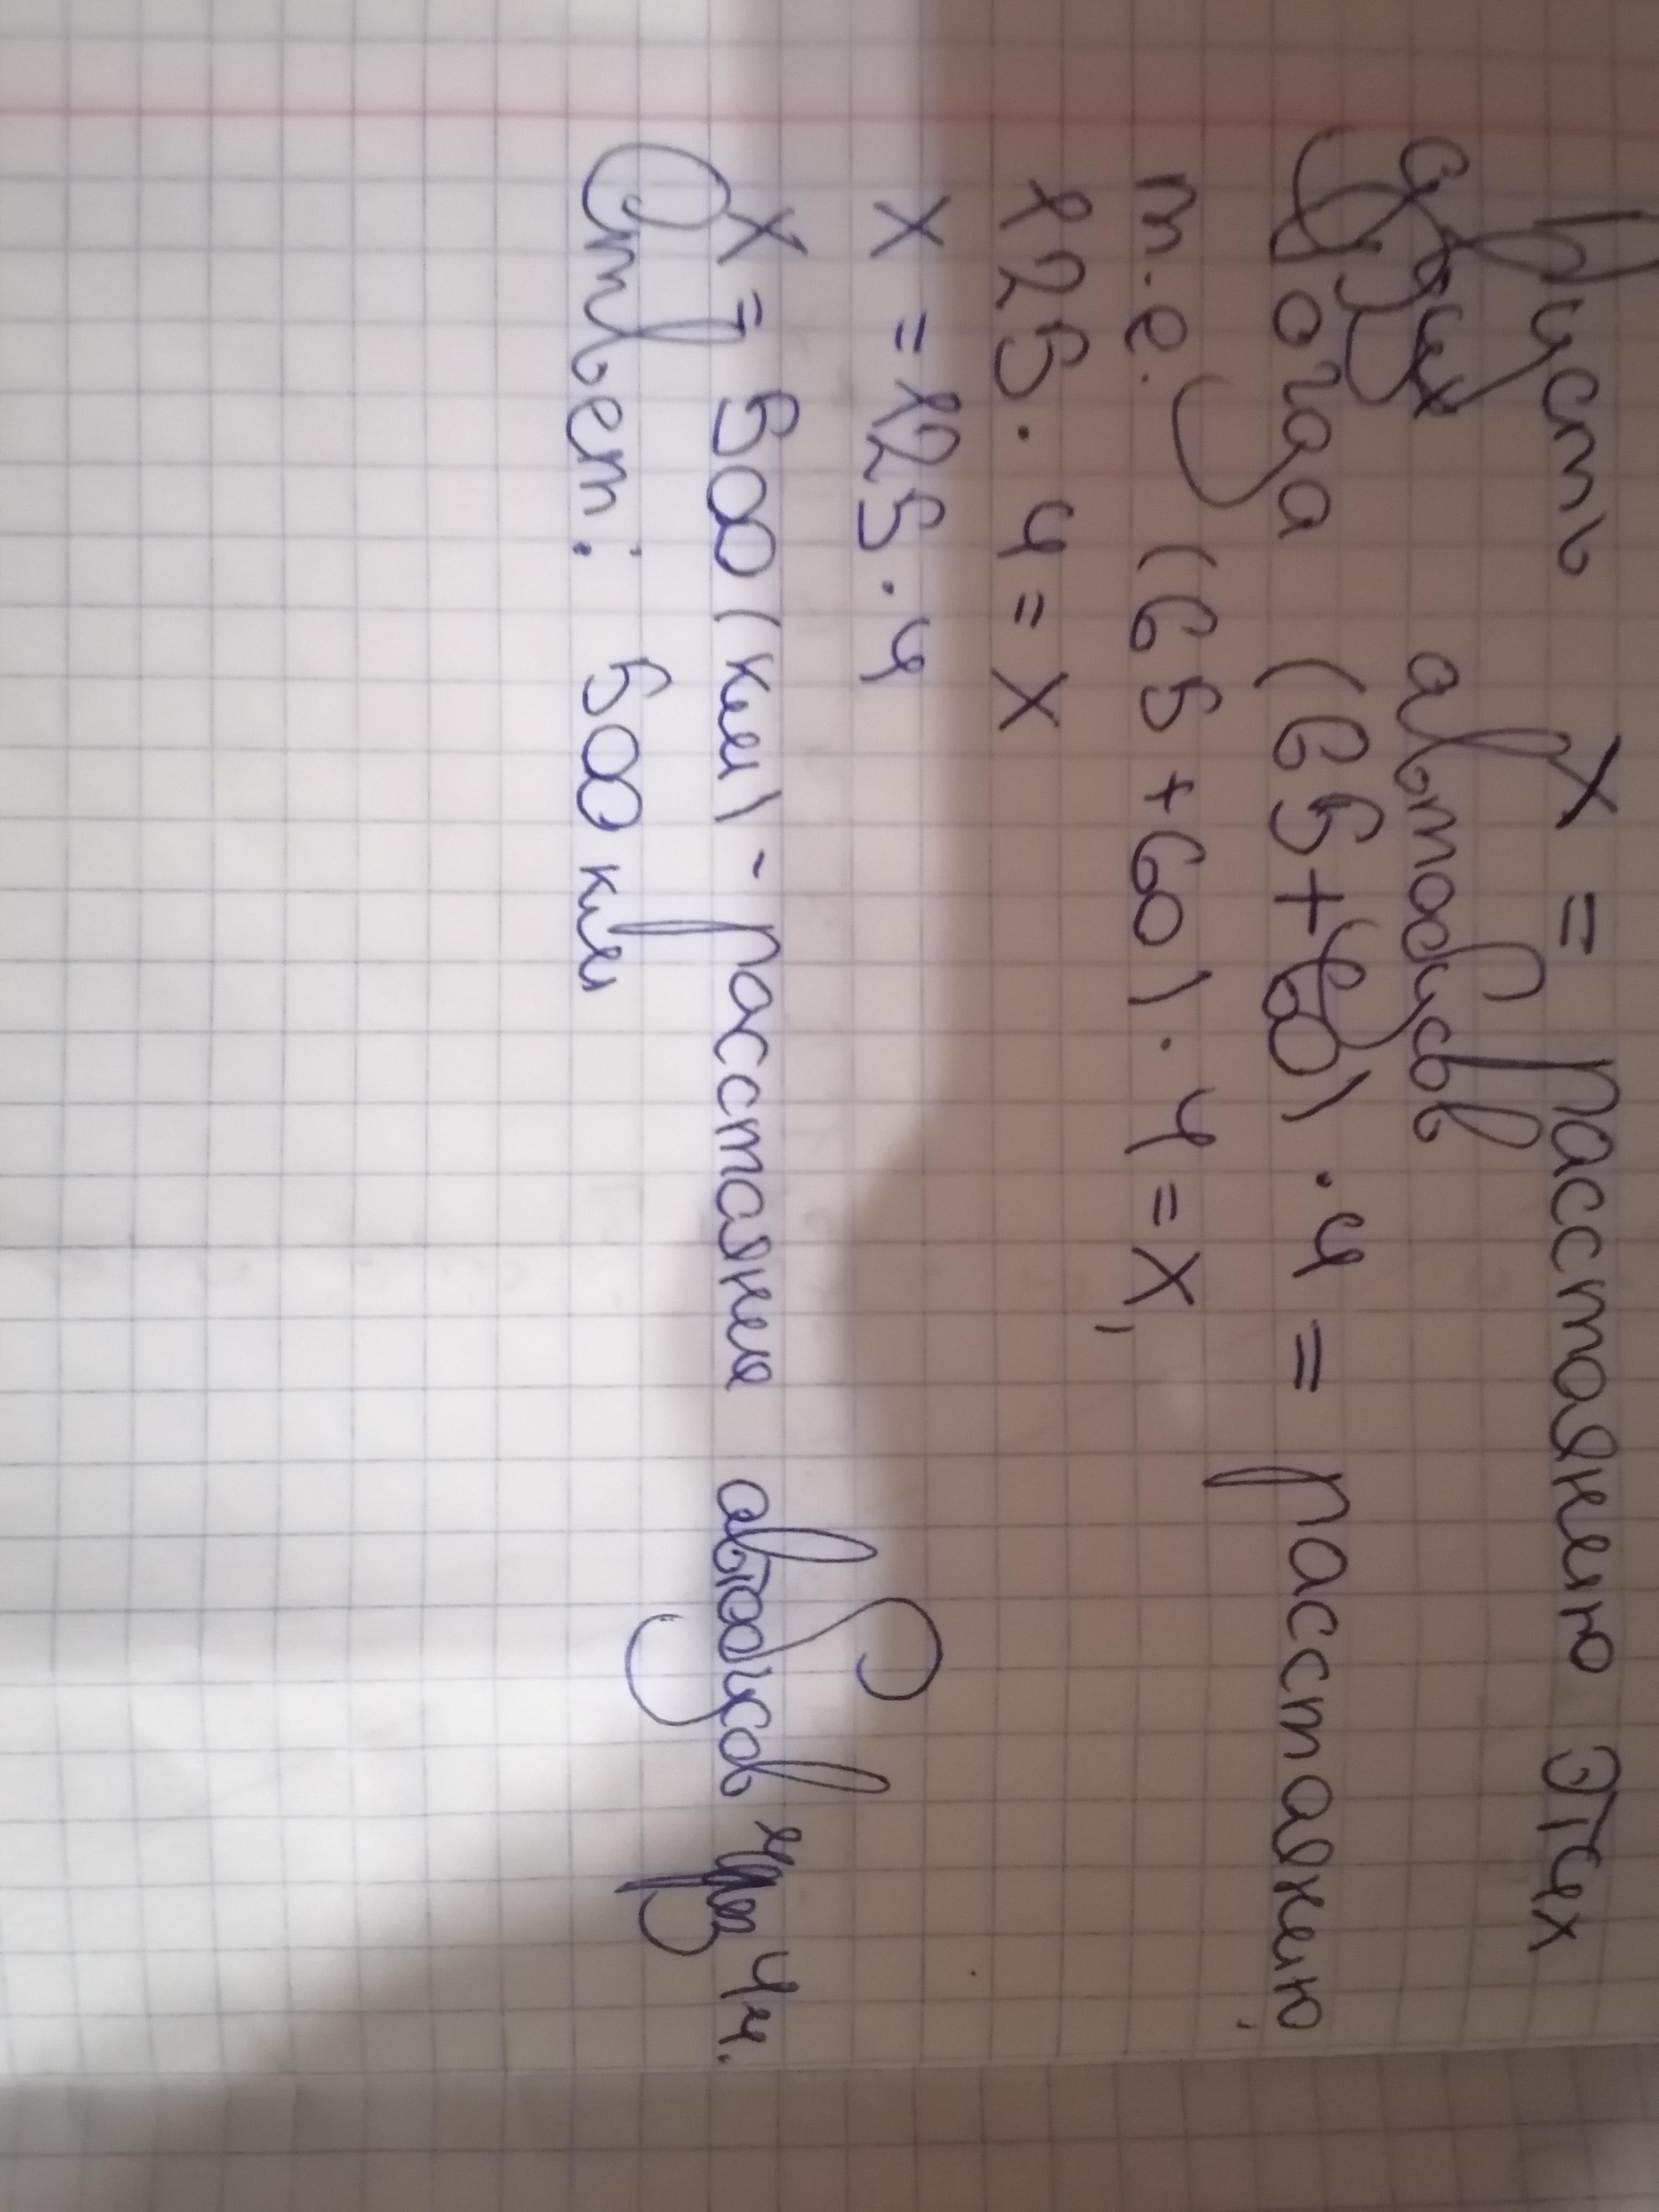 Пусть x = расстоянию этих
двух автобусов
Тогда (65+60) · 4 = расстоянию,
т.е. (65+60) · 4 = x,
125 · 4 = x
x = 125 · 4
x = 500 (км) - расстояние автобусов через 4ч.
Ответ: 500 км